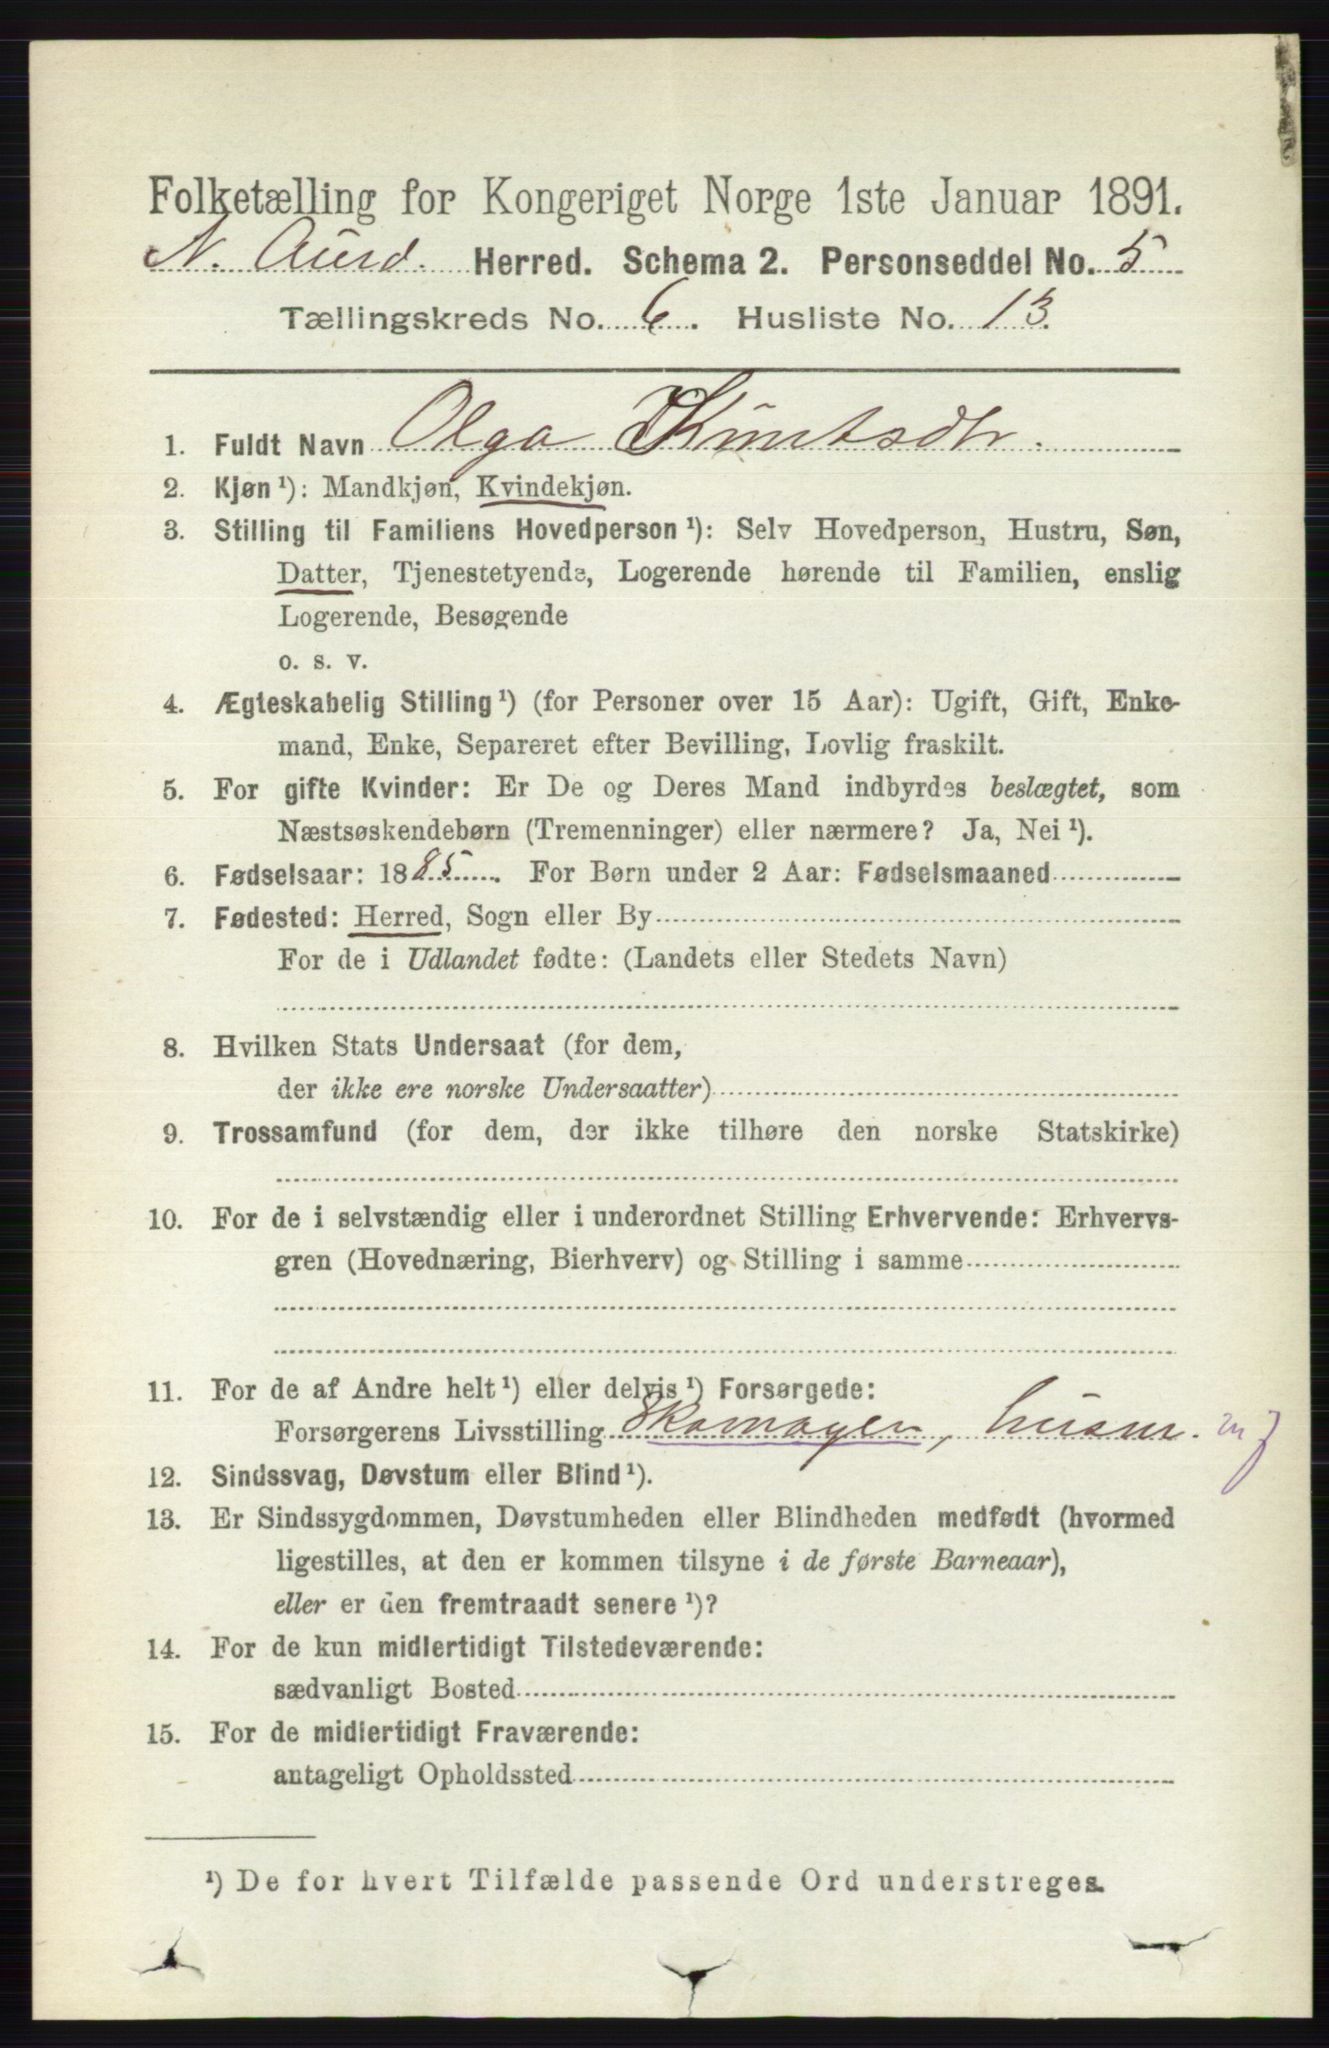 Folketælling for Kongeriget Norge 1ste Januar 1891.
N. Aurd. Herred. Schema 2. Personseddel No. 5
Tællingskreds No. 6. Husliste No. 13.
1. Fuldt Navn Olga Knutsdtr.
2. Kjøn¹): Mandkjøn, Kvindekjøn.
3. Stilling til Familiens Hovedperson¹): Selv Hovedperson, Hustru, Søn,
Datter, Tjenestetyende, Logerende hørende til Familien, enslig
Logerende, Besøgende
o. s. v.
4. Ægteskabelig Stilling¹) (for Personer over 15 Aar): Ugift, Gift, Enke-
mand, Enke, Separeret efter Bevilling, Lovlig fraskilt.
5. For gifte Kvinder: Er De og Deres Mand indbyrdes beslægtet, som
Næstsøskendebørn (Tremenninger) eller nærmere? Ja, Nei¹).
6. Fødselsaar: 1885. For Børn under 2 Aar: Fødselsmaaned
7. Fødested: Herred, Sogn eller By
For de i Udlandet fødte: (Landets eller Stedets Navn)
8. Hvilken Stats Undersaat (for dem,
der ikke ere norske Undersaatter)
9. Trossamfund (for dem, der ikke tilhøre den norske Statskirke)
10. For de i selvstændig eller i underordnet Stilling Erhvervende: Erhvervs-
gren (Hovednæring, Bierhverv) og Stilling i samme
11. For de af Andre helt¹) eller delvis¹) Forsørgede:
Forsørgerens Livsstilling Skomager, husm.
12. Sindssvag, Døvstum eller Blind¹).
13. Er Sindssygdommen, Døvstumheden eller Blindheden medfødt (hvormed
ligestilles, at den er kommen tilsyne i de første Barneaar),
eller er den fremtraadt senere¹)?
14. For de kun midlertidigt Tilstedeværende:
sædvanligt Bosted
15. For de midlertidigt Fraværende:
antageligt Opholdssted
¹) De for hvert Tilfælde passende Ord understreges.